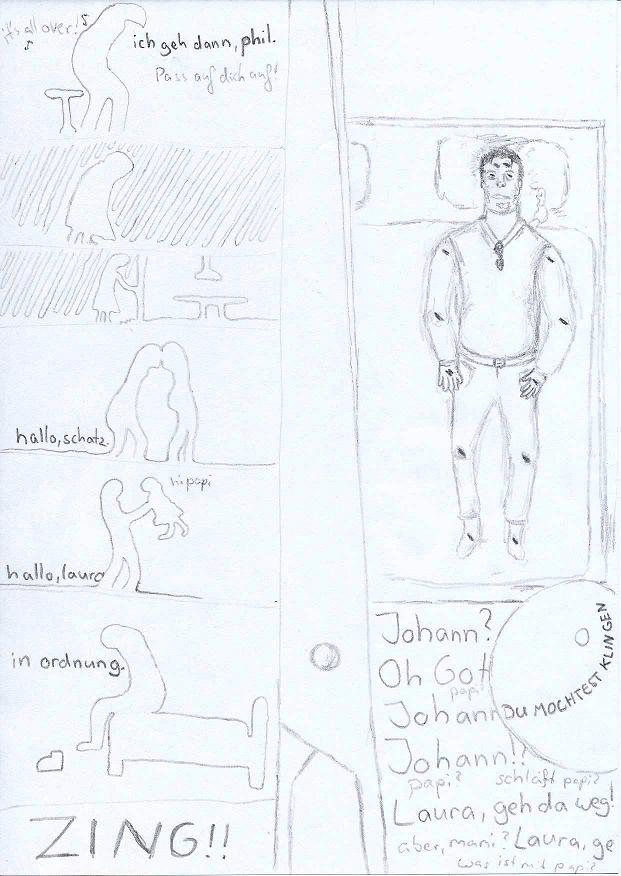 it's all over!
ich geh dann, phil.
Pass auf dich auf!
hallo, schatz.
hi papi
hallo, laura
in ordnung.
ZING!!
Johann?
Oh Gott
papi
Johann
DU MÖCHTEST KLINGEN
Johann!!
papi? schläft papi?
Laura, geh da weg!
aber, mami? Laura, ge
was ist mit papi?